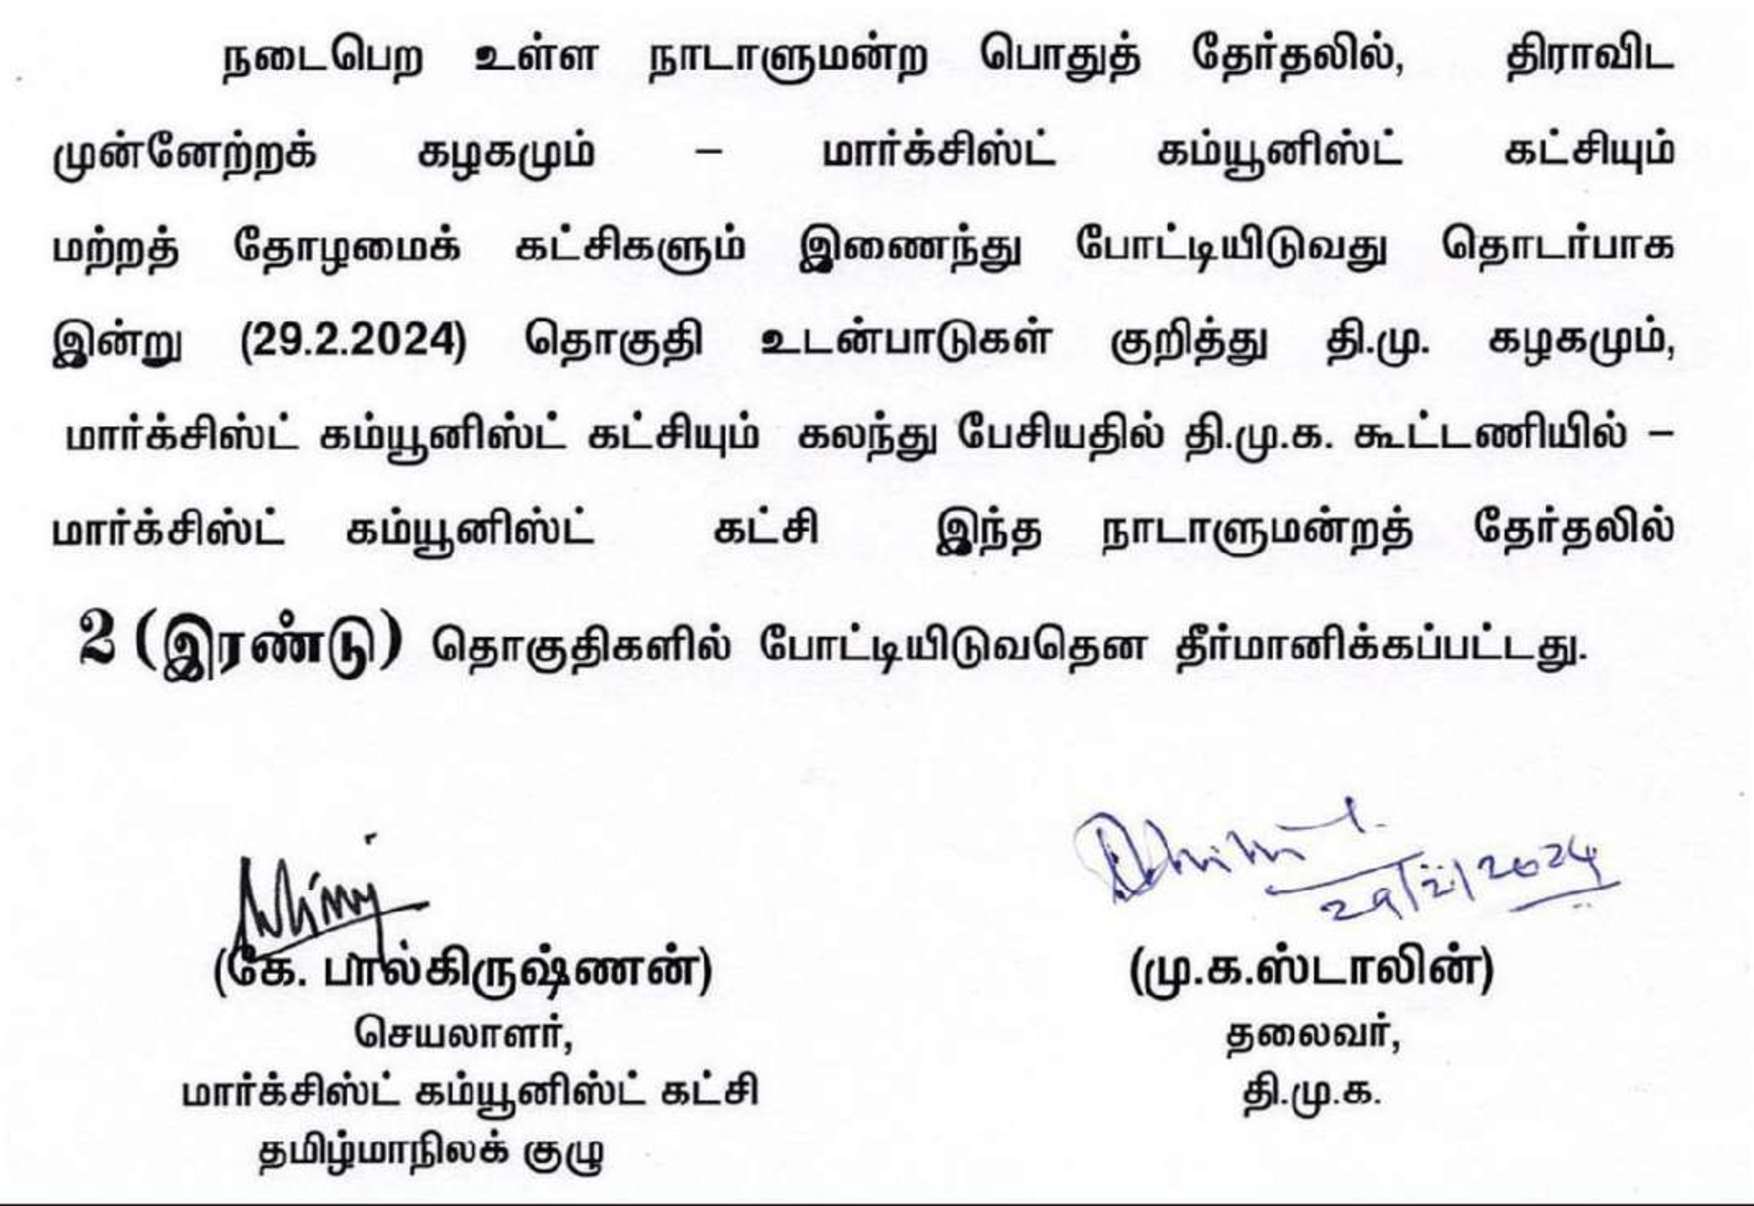 நடைபெற உள்ள நாடாளுமன்ற பொதுத் தேர்தலில், திராவிட
முன்னேற்றக் கழகமும் – மார்க்சிஸ்ட் கம்யூனிஸ்ட் கட்சியும்
மற்றத் தோழமைக் கட்சிகளும் இணைந்து போட்டியிடுவது தொடர்பாக
இன்று (29.2.2024) தொகுதி உடன்பாடுகள் குறித்து தி.மு. கழகமும்,
மார்க்சிஸ்ட் கம்யூனிஸ்ட் கட்சியும் கலந்து பேசியதில் தி.மு.க. கூட்டணியில் –
மார்க்சிஸ்ட் கம்யூனிஸ்ட் கட்சி இந்த நாடாளுமன்றத் தேர்தலில்
2 (இரண்டு) தொகுதிகளில் போட்டியிடுவதென தீர்மானிக்கப்பட்டது.
29/2/2024
(கே. பால்கிருஷ்ணன்)
செயலாளர்,
மார்க்சிஸ்ட் கம்யூனிஸ்ட் கட்சி
தமிழ்மாநிலக் குழு
(மு.க.ஸ்டாலின்)
தலைவர்,
தி.மு.க.